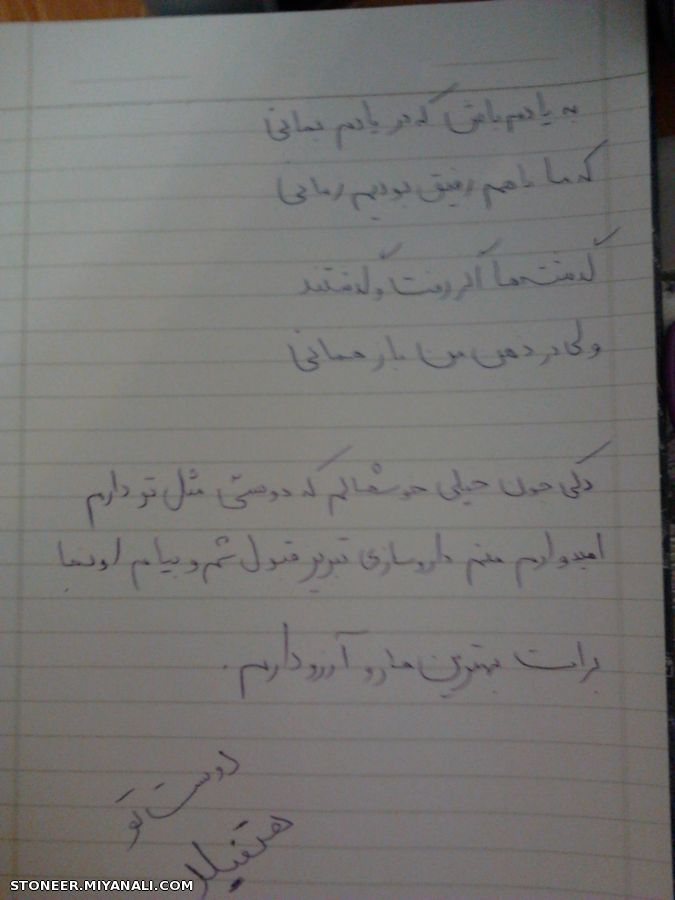 به یادم باش که در یادم بمانی
که ما باهم رفیق بودیم زمانی
گذشته ما اگر رفت و گذشتند
ولی در ذهن من باز همانی
دکی جون خیلی خوشحالم که دوستی مثل تو دارم
امیدوارم منم داروسازی تبریز قبول شم و بیام اونجا
برات بهترین هارو آرزو دارم.
دوست تو
STONEER.MIYANALI.COM